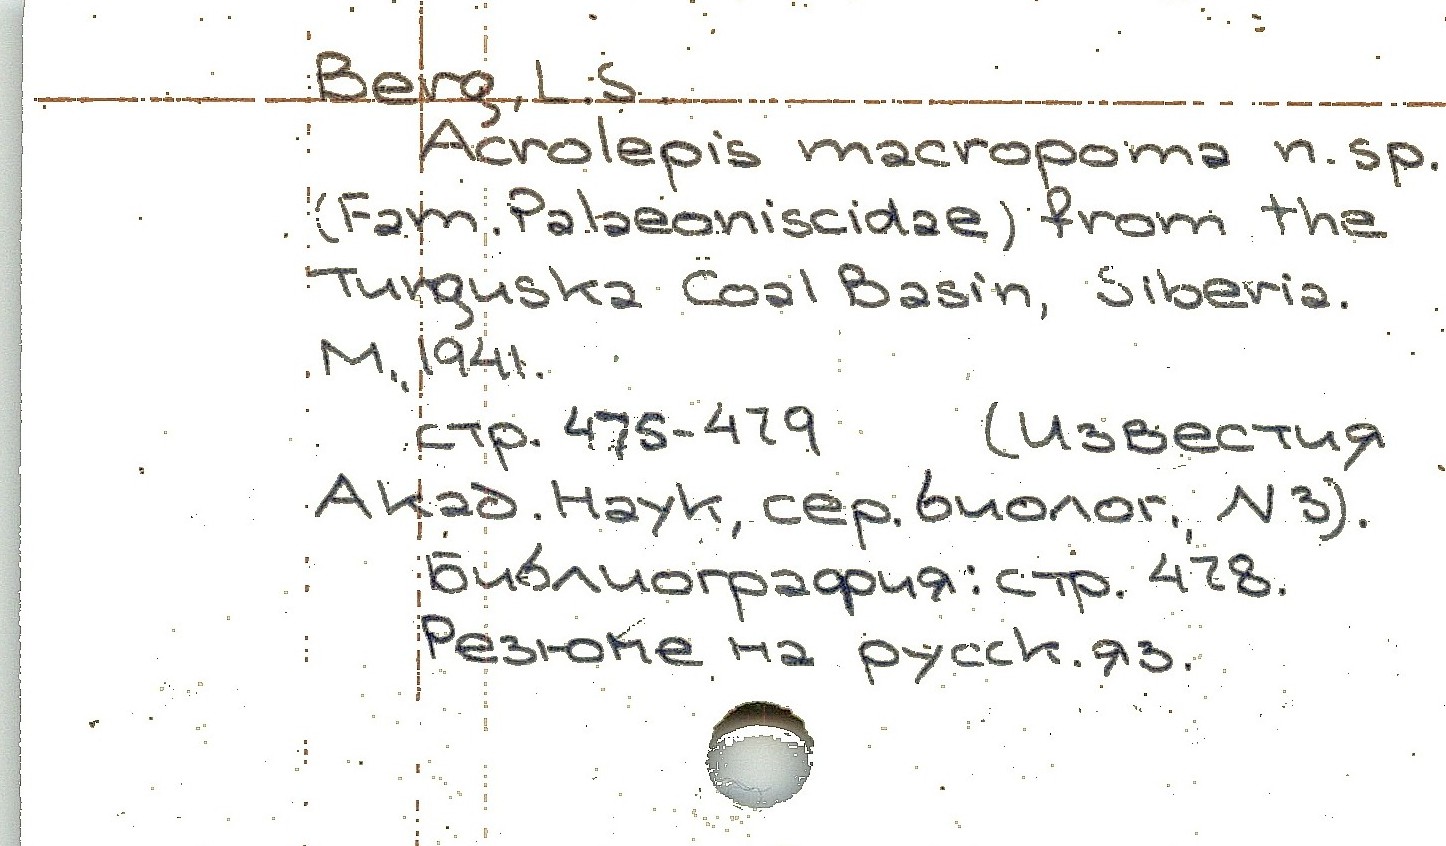 Berg, L.S.
Acrolepis macropoma n. sp.
(Fam. Palaeoniscidae) from the
Tunguska Coal Basin, Siberia.
М., 1941.
стр. 475-479 (Известия
Акад. Наук, сер. биолог., N 3).
Библиография: стр. 478.
Резюме на русск. яз.